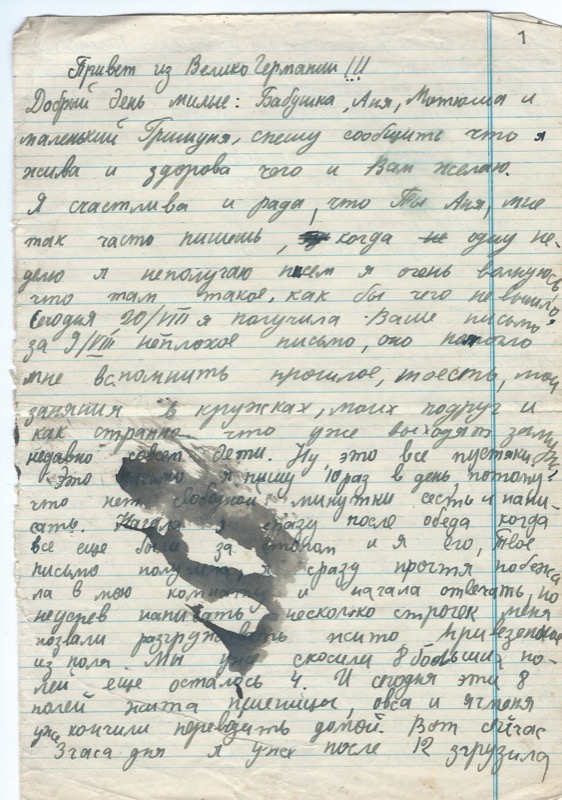 1
Привет из ВеликоГермании !!!
Добрый день милые: Бабушка, Аня, Мотюша и
маленький Гришуня, спешу сообщить что я
жива и здорова чего и Вам желаю.
Я счастлива и рада, что Ты Аня, мне
так часто пишешь, когда не одну не-
делю я неполучаю писем я очень волнуюсь
что там такое, как бы чего не вышло
Сегодня 20/VIII я получила Ваше письмо
за 9/VIII неплохое письмо, оно
мне вспомнить прошлое, тоесть, мои
занятия в кружках, моих подруг и
как странно что уже выходят замуж
недавно совсем дети. Ну, это все пустяки.
Это письмо я пишу 10 раз в день, потому
что нет свободной минутки сесть и напи-
сать. Начала я сразу после обеда когда
все еще были за столом и я его, твое
письмо получила, я сразу прочтя побежа
ла в мою комнатку и начала отвечать, но
неуспев написать несколько строчек меня
позвали разгружовать жито привезенное
из поля. Мы уже скосили 8 больших по-
лей еще осталось 4. И сегодня эти 8
полей жита пшеницы, овса и ячменя
уже кончили перевозить домой. Вот сейчас
3 часа дня я уже после 12 згрузила